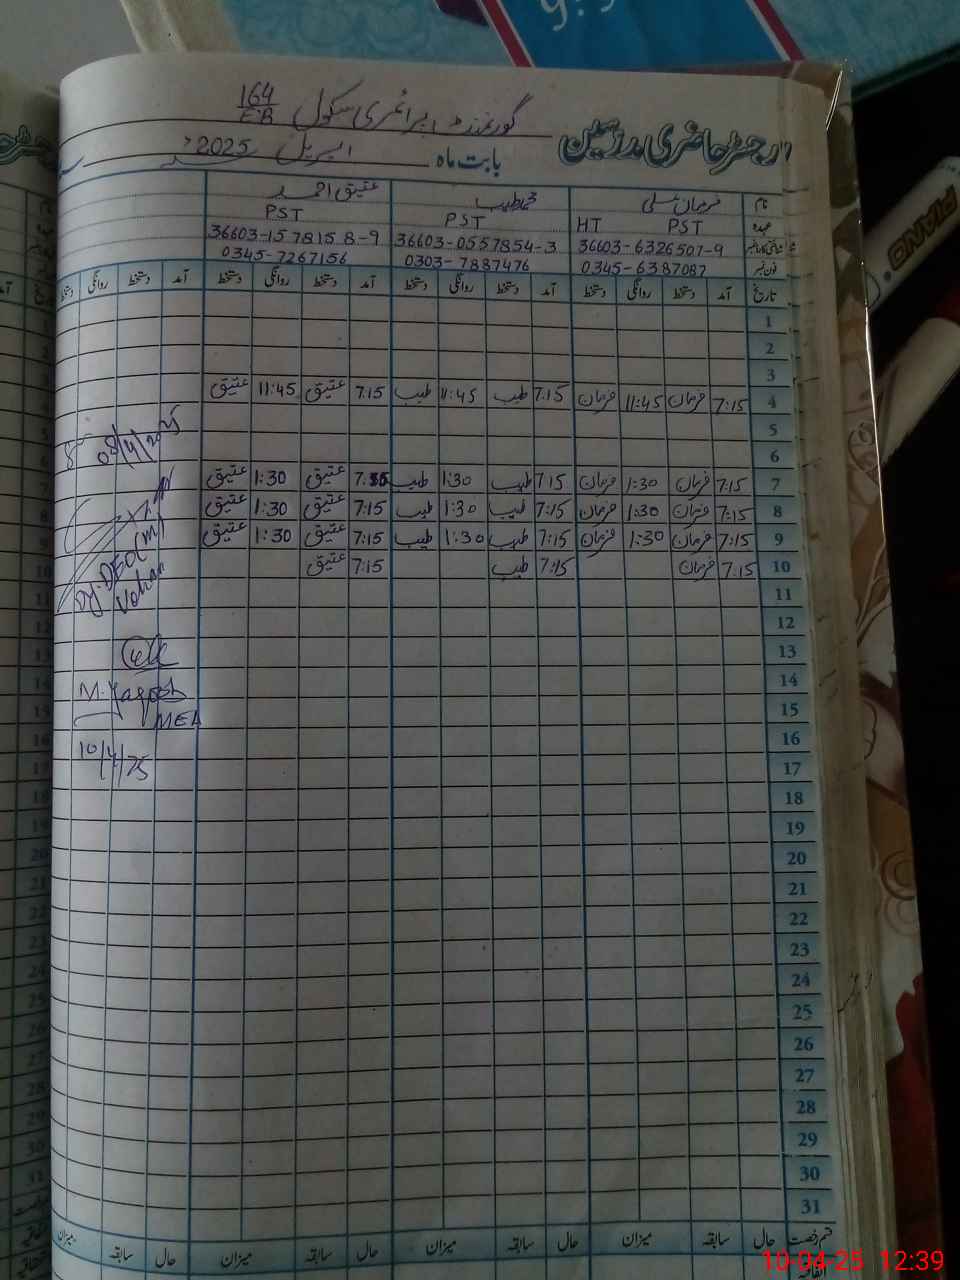 رجسٹر حاضری مدرسین گورنمنٹ پرائمری سکول 164/EB
بابت ماہ اپریل 2025
نام فرمان علی محمد طیب عتیق احمد
عہدہ PST HT PST PST
شناختی کارڈ نمبر 36603-6326507-9 36603-0557854-3 36603-1578158-9
فون نمبر 0345-6387087 0303-7887476 0345-7267156
تاریخ آمد دستخط روانگی دستخط آمد دستخط روانگی دستخط آمد دستخط روانگی دستخط آمد دستخط روانگی دستخط
1
2
3
4 7:15 فرمان 11:45 فرمان 7:15 طیب 11:45 طیب 7:15 عتیق 11:45 عتیق
5
6
7 7:15 فرمان 1:30 فرمان 7:15 طیب 1:30 طیب 7:15 عتیق 1:30 عتیق
8 7:15 فرمان 1:30 فرمان 7:15 طیب 1:30 طیب 7:15 عتیق 1:30 عتیق
9 7:15 فرمان 1:30 فرمان 7:15 طیب 1:30 طیب 7:15 عتیق 1:30 عتیق
10 7:15 فرمان 7:15 طیب 7:15 عتیق
11
12
13
14
15
16
17
18
19
20
21
22
23
24
25
26
27
28
29
30
31
قسم رخصت حال سابقہ میزان حال سابقہ میزان حال سابقہ میزان حال سابقہ میزان
اتفاقیہ
08/4/2025
Dy. DEO (M)
M. Yaqoob
MEA
10/4/25
PIANO
10-04-25 12:39